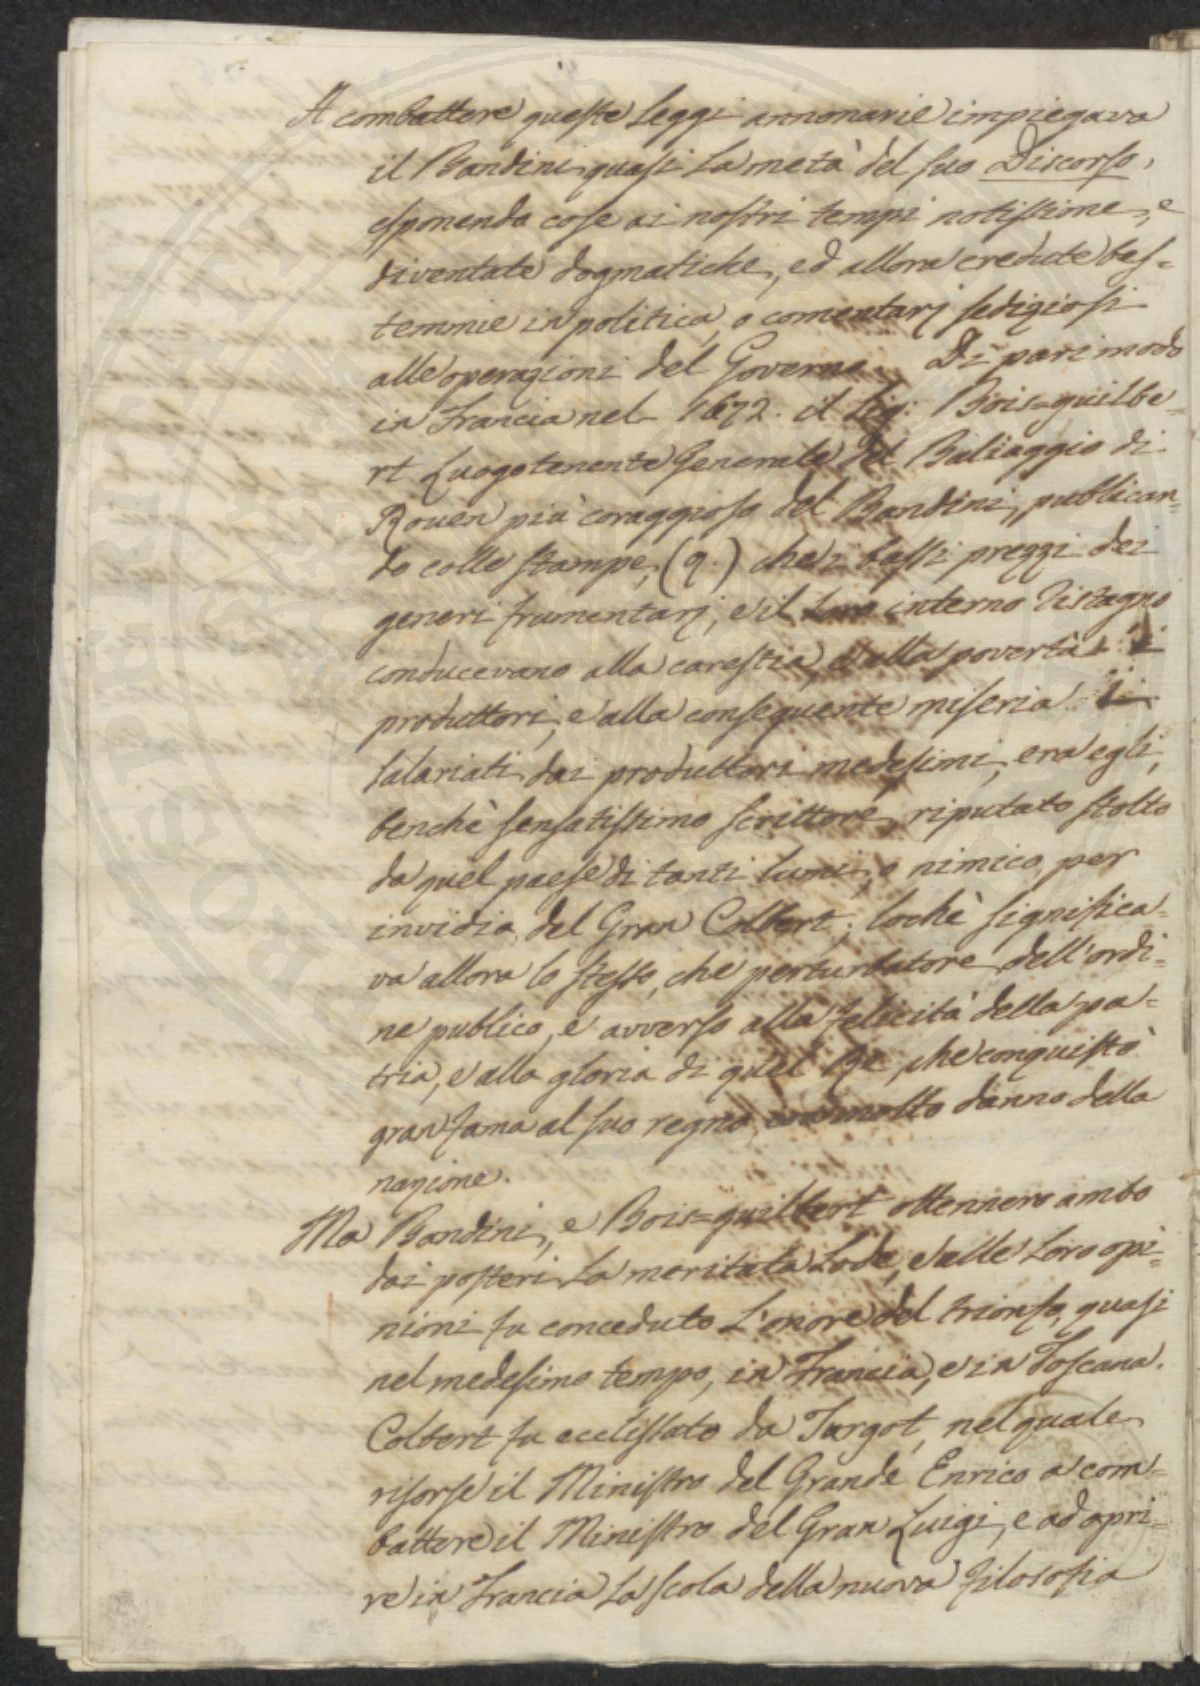 A combattere queste Leggi annonarie impiegava
il Bandini quasi La metà del suo Discorso,
esponendo cose ai nostri tempi notissime, e
diventate dogmatiche, ed allora credute bes=
temmie in politica, o comentarj sediziosi
alle operazioni del Governo. Di pari modo
in Francia nel 1672. il Sig: Bois=guilbe=
rt Luogotenente Generale del Baliaggio di
Rouen più coraggioso del Bandini, publican=
do colle stampe, (9.) che i bassi prezzi dei
generi frumentarj, e il loro interno ristagno
conducevano alla carestia, e alla povertà i
produttori, e alla conseguente miseria i
salariati dai produttori medesimi, era egli,
benchè sensatissimo scrittore, riputato stolto
da quel paese di tanti lumi, o nimico per
invidia del Gran Colbert; lochè significa=
va allora lo stesso, che perturbatore dell'ordi=
ne publico, e avverso alla felicità della pa=
tria, e alla gloria di quel Re, che conquistò
gran fama al suo regno con molto danno della
nazione.
Ma Bandini, e Bois=guilbert ottennero ambo
dai posteri La meritata Lode, e alle Loro opi=
nioni fu conceduto L'onore del trionfo, quasi
nel medesimo tempo, in Francia, e in Toscana.
Colbert fu ecclissato da Turgot, nel quale
risorse il Ministro del Grande Enrico a com=
battere il Ministro del Gran Luigi, e ad apri=
re in Francia La scola della nuova filosofia
PROSPERITATI